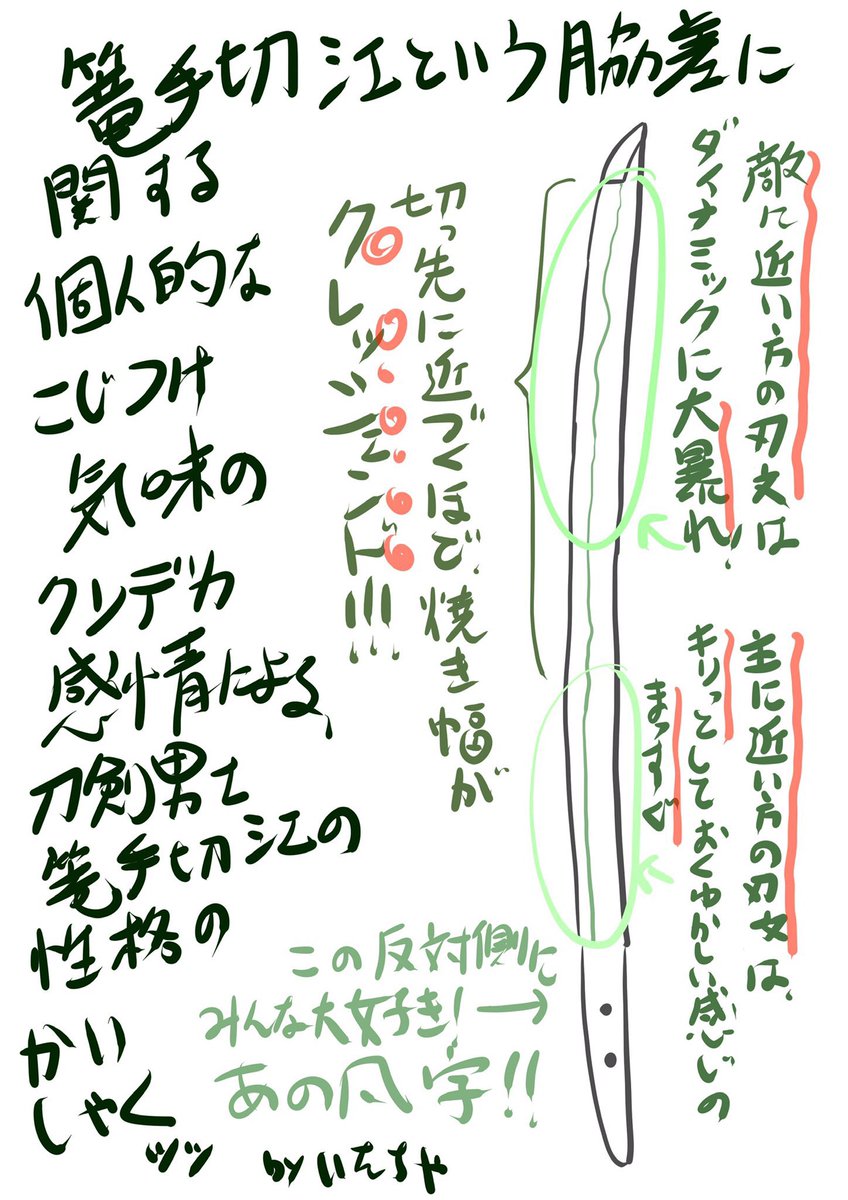 篭手切江という脇差に
関する
個人的な
こじつけ
気味の
クソデカ
感情による、
刀剣男士
篭手切江の
性格の
かい
しゃくッッ
by
敵に近い方の刃文は
ダイナミックに大暴れ!
切っ先に近づくほど、焼き幅が
クレッシェンド!!!
主に近い方の刃文は、
キリっとしておくゆかしい感じの
まっすぐ
この反対側に
みんな大好き!→
あの凡字!!